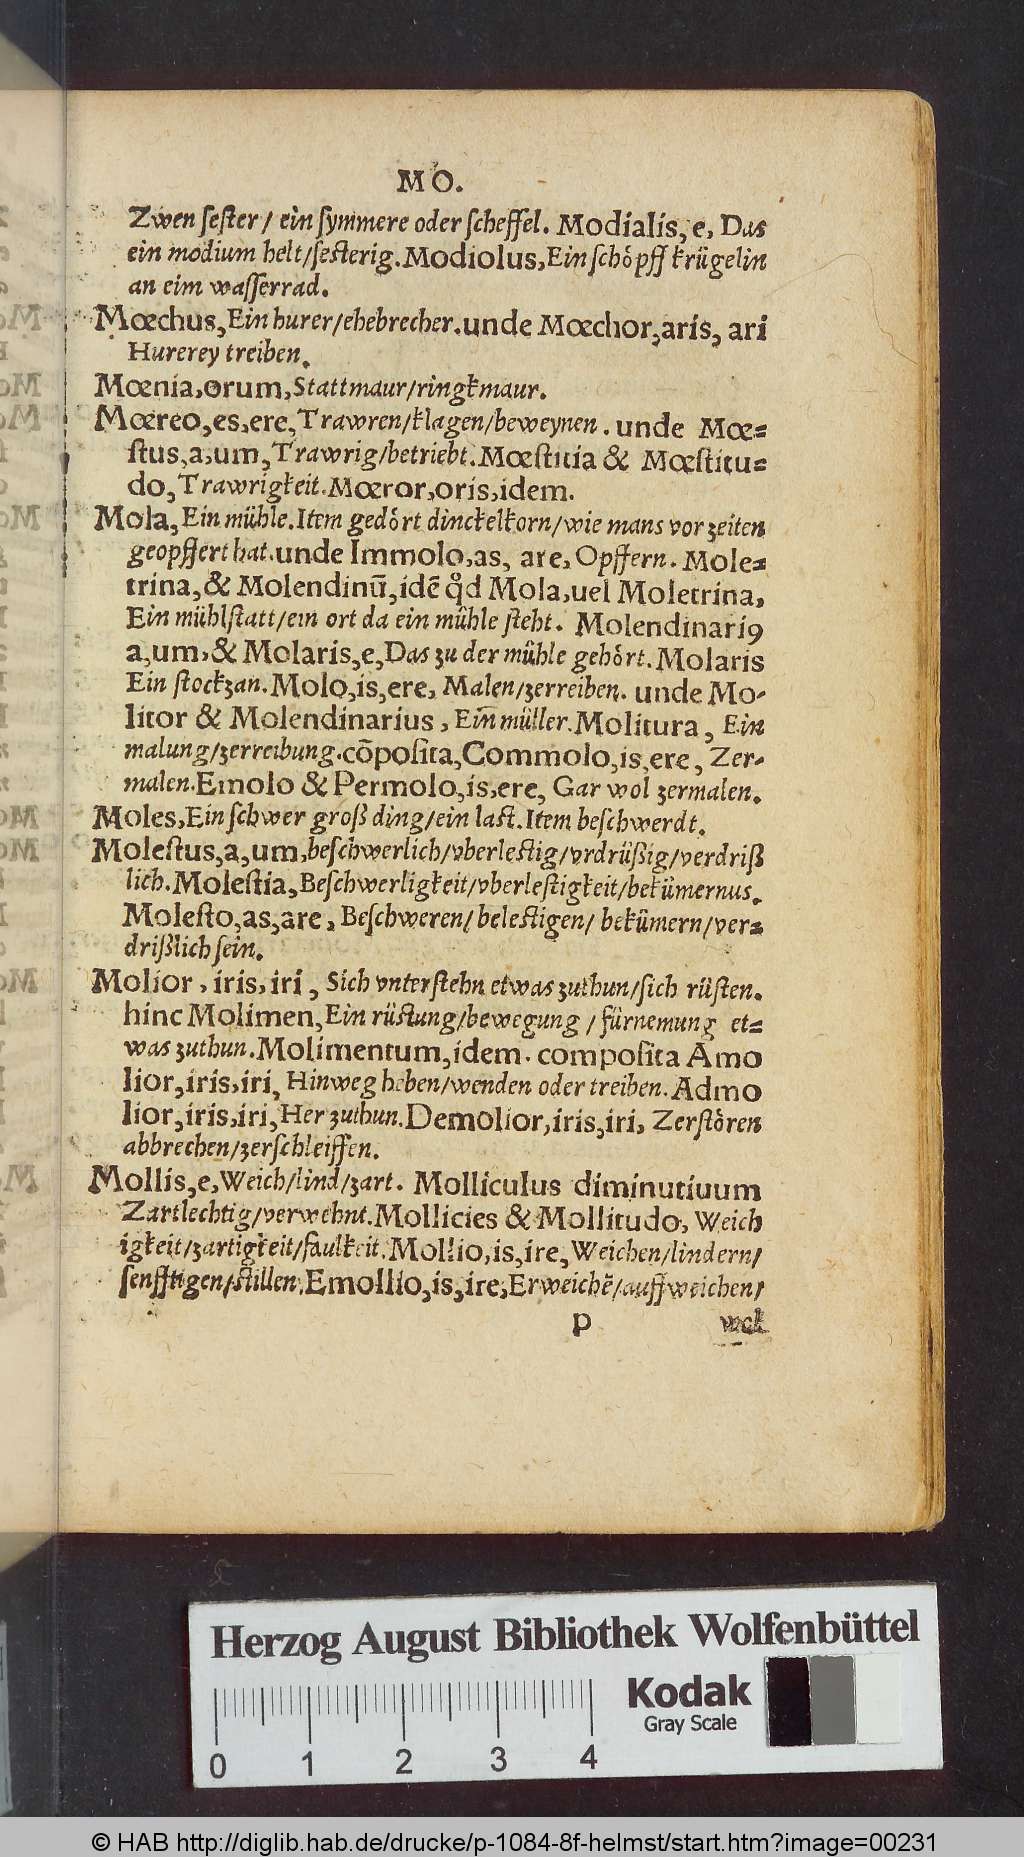 MO.
Zwen ſeſter / ein ſymmere oder ſcheffel. Modialis, e, Das
ein modium helt/ſeſterig. Modiolus, Ein ſchöpff krügelin
an eim waſſerrad.
Mœchus, Ein hurer/ehebrecher. unde Mœchor, aris, ari
Hurerey treiben.
Mœnia, orum, Stattmaur/ringkmaur.
Mœreo, es, ere, Trawren/klagen/beweynen. unde Mœ-
ſtus, a, um, Trawrig/betriebt. Mœſtitia & Mœſtitu-
do, Trawrigkeit. Mœror, oris, idem.
Mola, Ein mühle. Item gedört dinckelkorn/wie mans vor zeiten
geopffert hat. unde Immolo, as, are, Opffern. Mole-
trina, & Molendinū, idē qd̊ Mola, uel Moletrina,
Ein mühlſtatt/ein ort da ein mühle ſteht. Molendinariꝯ
a, um, & Molaris, e, Das zu der mühle gehört. Molaris
Ein ſtockzan. Molo, is, ere, Malen/zerreiben. unde Mo-
litor & Molendinarius, Ein müller. Molitura, Ein
malung/zerreibung. cōpoſita, Commolo, is, ere, Zer-
malen. Emolo & Permolo, is, ere, Gar wol zermalen.
Moles, Ein ſchwer groß ding/ein laſt. Item beſchwerdt.
Moleſtus, a, um, beſchwerlich/vberleſtig/vrdrüßig/verdriß
lich. Moleſtia, Beſchwerligkeit/vberleſtigkeit/bekümernus.
Moleſto, as, are, Beſchweren/beleſtigen/ bekümern/ver-
drißlich ſein.
Molior, iris, iri, Sich vnterſtehn etwas zuthun/ſich rüſten.
hinc Molimen, Ein rüſtung/bewegung / fürnemung et-
was zuthun. Molimentum, idem. compoſita Amo
lior, iris, iri, Hinweg heben/wenden oder treiben. Admo
lior, iris, iri, Her zuthun. Demolior, iris, iri, Zerſtören
abbrechen/zerſchleiffen.
Mollis, e, Weich/lind/zart. Molliculus diminutiuum
Zartlechtig/verwehnt. Mollicies & Mollitudo, Weich
igkeit/zartigkeit/faulkeit. Mollio, is, ire, Weichen/lindern/
ſenfftigen/ſtillen. Emollio, is, ire, Erweichē/auffweichen/
p
Herzog August Bibliothek Wolfenbüttel
Kodak
Gray Scale
0 1 2 3 4
© HAB http://diglib.hab.de/drucke/p-1084-8f-helmst/start.htm?image=00231